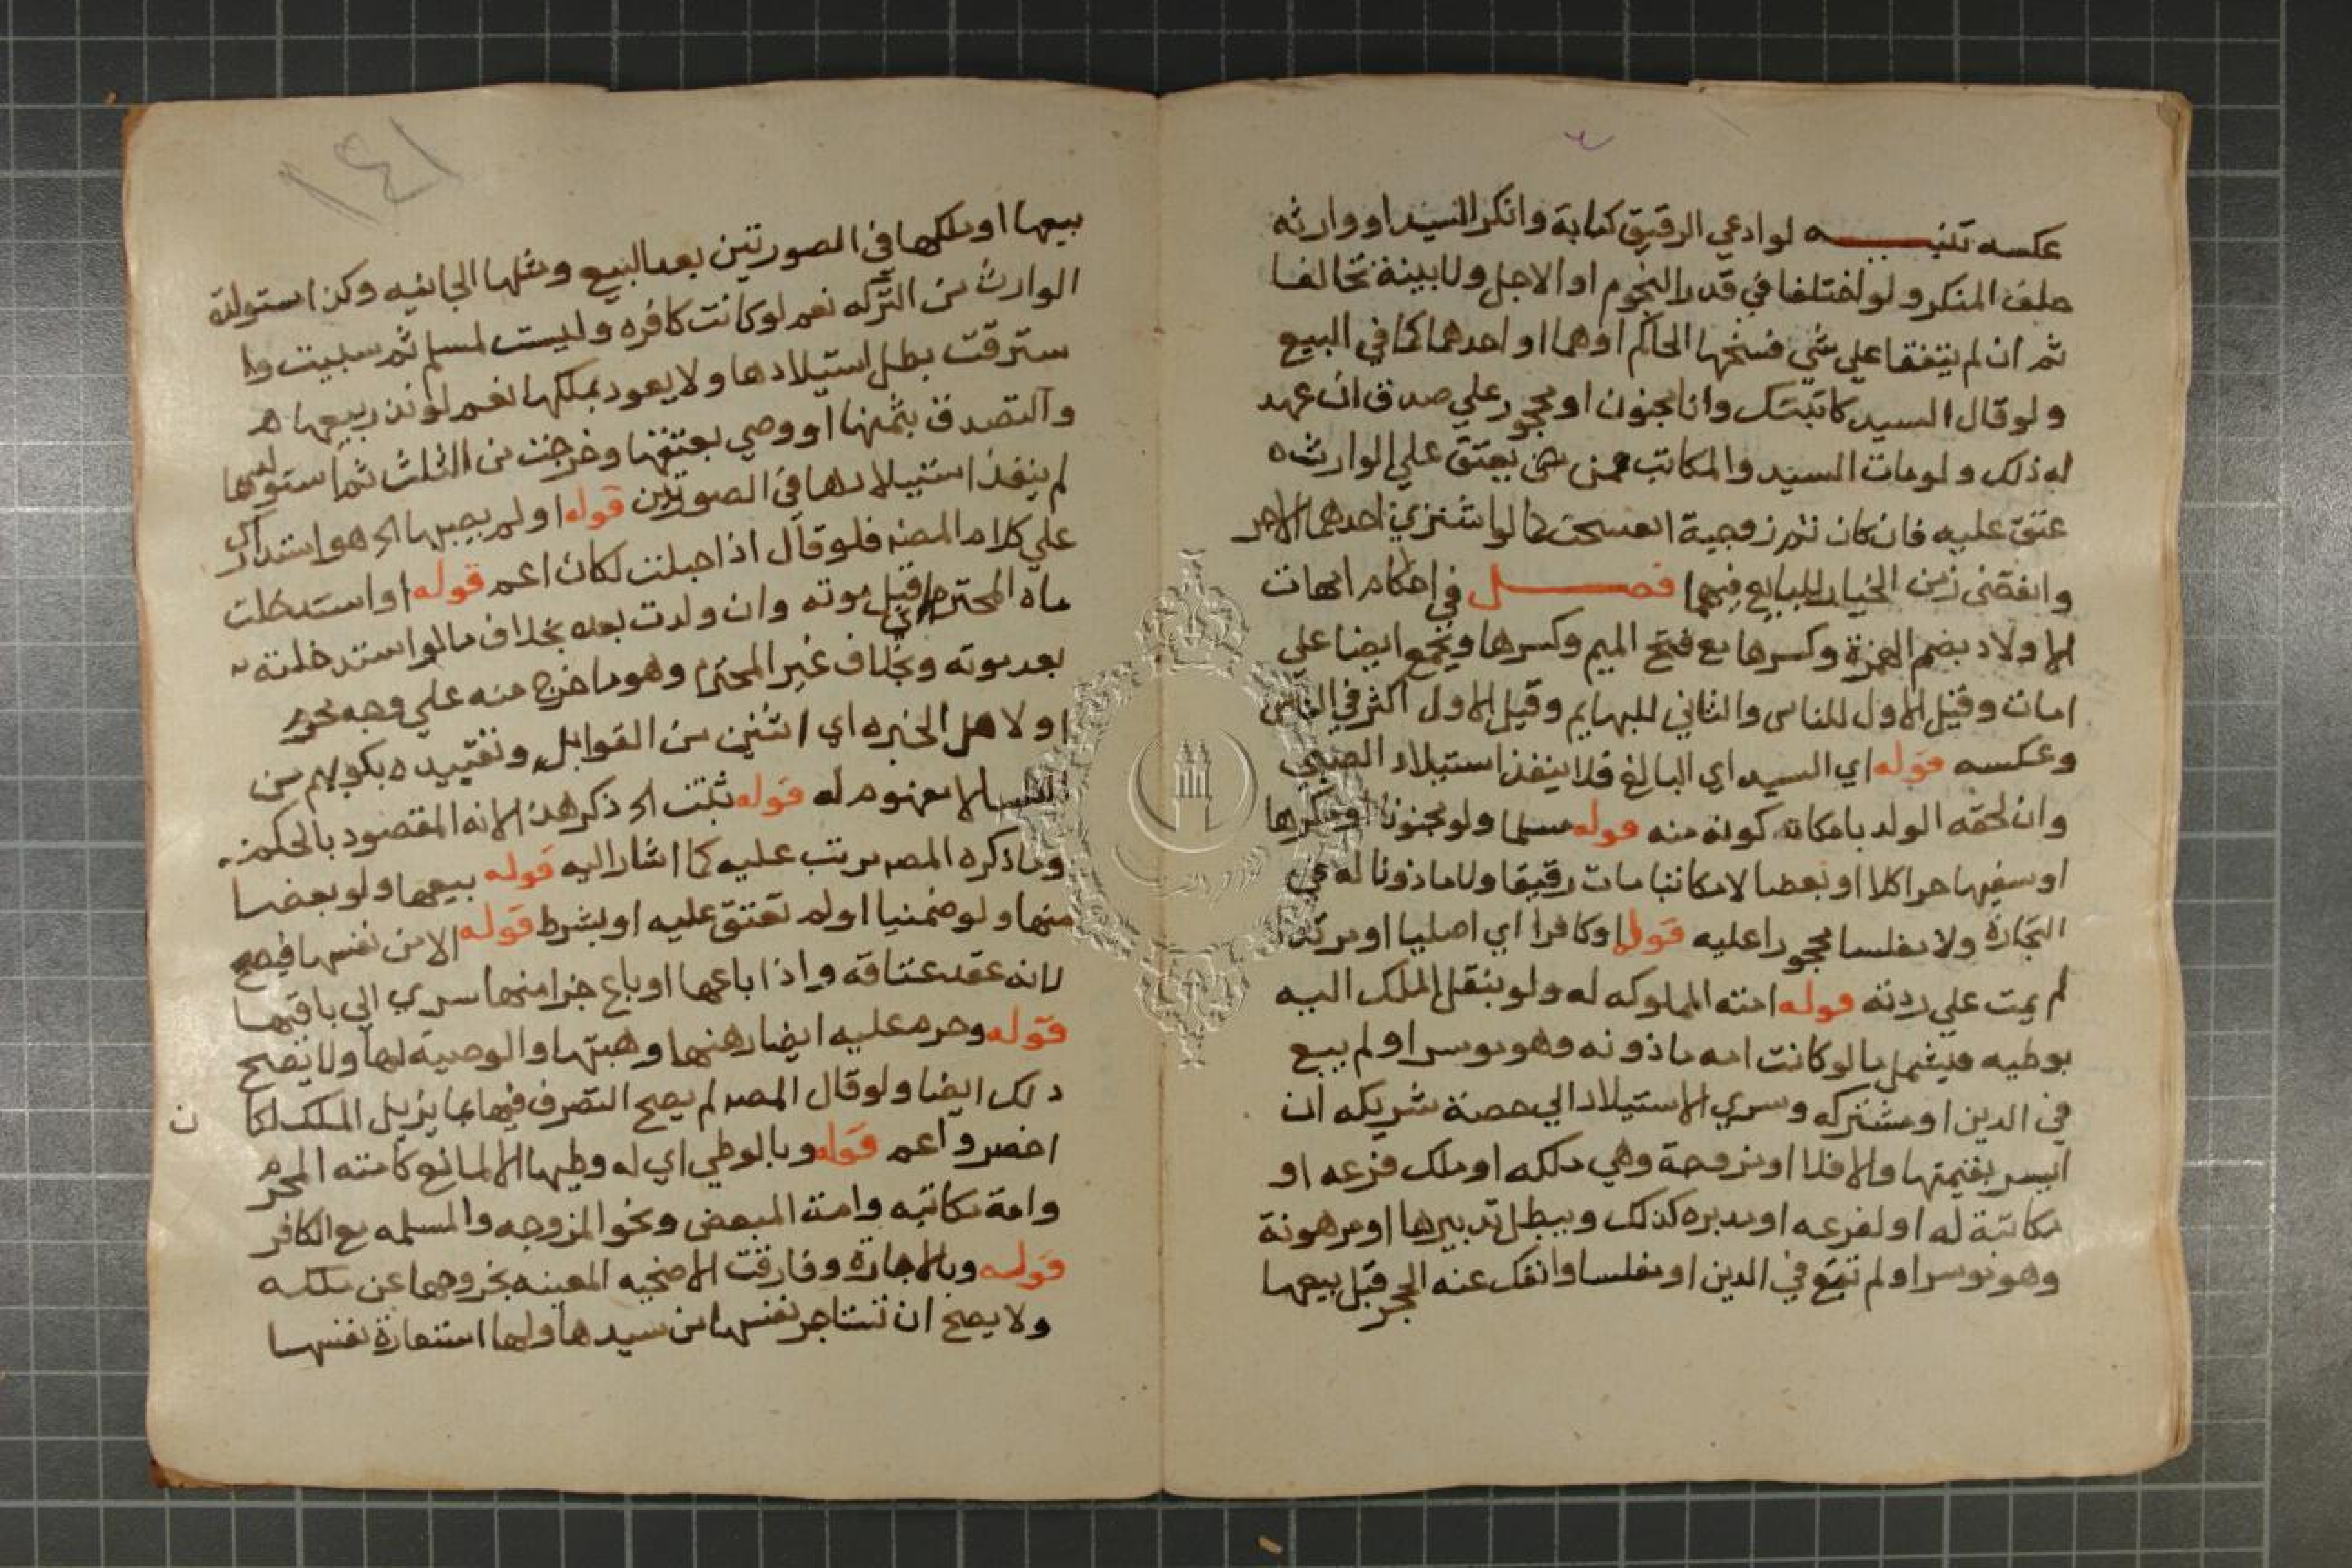 عكسه تنبيه لو ادعي الرقيق كتابة وانكر السيد او وارثه
حلف المنكر ولو اختلفا في قدر النجوم او الاجل ولا بينة تحالفا
ثم ان لم يتفقا علي شي فسخها الحاكم او هما او احدهما كما في البيع
ولو قال السيد كاتبتك وانا مجنون او محجور علي صدق ان عهد
له ذلك ولو مات السيد والمكاتب ممن يعتق علي الوارث
عتق عليه فان كان ثم زوجية انفسخت كما لو اشتري احدهما الاخر
وانقضي زمن الخيار للبايع فيهما فصل في احكام امهات
الاولاد بضم الهمزة وكسرها مع فتح الميم وكسرها ويجمع ايضا علي
امات وقيل الاول للناس والثاني للبهايم وقيل الاول اكثر في الناس
وعكسه قوله اي السيد اي البالغ فلا ينفذ استيلاد الصبي
وان لحقه الولد بامكان كونه منه قوله مسلما ولو مجنونا او مكرها
او سفيها حرا كلا او بعضا لا مكاتبا مات رقيقا ولا ماذونا له في
التجارة ولا مفلسا محجورا عليه قوله او كافرا اي اصليا او مرتدا
لم يمت علي ردته قوله امته المملوكه له ولو بنقل الملك اليه
بوطيه فيشمل ما لو كانت امه ماذونه وهو موسر او لم يبع
في الدين او مشتركه وسري الاستيلاد الي حصة شريكه ان
ايسر بقيمتها والا فلا او مزوجة وهي ملكه او ملك فرعه او
مكاتبة له او لفرعه او مدبره كذلك ويبطل تدبيرها او مرهونة
وهو موسر او لم تبع في الدين او مفلسا وانفك عنه الحجر قبل بيعها
١٤١
بيعها او ملكها في الصورتين بعد البيع ومثلها الجانيه وكذا مستولدة
الوارث من التركه نعم لو كانت كافره وليست لمسلم ثم سبيت وا
سترقت بطل استيلادها ولا يعود بملكها نعم لو نذر بيعها
والتصدق بثمنها او وصي بعتقها وخرجت من الثلث ثم استولدها
لم ينفذ استيلادها في الصورتين قوله او لم يصبها الخ هو استدراك
علي كلام المصنف فلو قال اذا احبلت لكان اعم قوله او استدخلت
ماه المحترم اي قبل موته وان ولدت بعده بخلاف ما لو استدخلته
بعد موته وبخلاف غير المحترم وهو ما خرج منه علي وجه محرم
او لاهل الخبره اي اثنين من القوابل وتقييده بكونهم من
النسا لا مفهوم له قوله ثبتت الخ ذكر هذا لانه المقصود بالحكم
وما ذكره المصـ مرتب عليه كما اشار اليه قوله بيعها ولو بعضا
منها ولو ضمنيا او لم تعتق عليه او بشرط قوله الا من نفسها فيصح
لانه عقد عتاقة واذا باعها او باع جزا منها سري الي باقيها
قوله وحرم عليه ايضا رهنها وهبتها والوصية لها ولا يصح
ذلك ايضا ولو قال المصـ لم يصح التصرف فيها بما يزيل الملك لكا ن
اخصر واعم قوله وبالوطي اي له وطيها الا لمانع كامته المحرم
وامة مكاتبه وامة المبعض ونحو المزوجه والمسلمه مع الكافر
قوله وبالاجارة وفارقت الاضحيه المعينه بخروجها عن ملكه
ولا يصح ان تستاجر نفسها من سيدها ولها استعارة نفسها